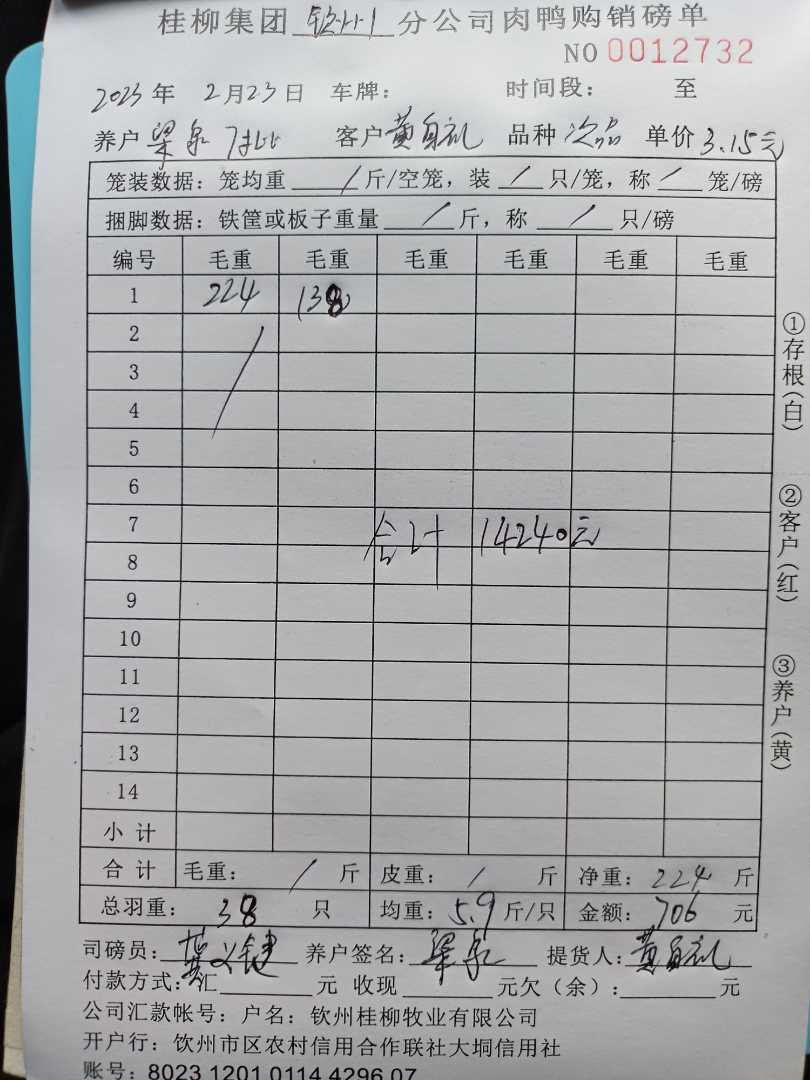 桂柳集团 钦州 分公司肉鸭购销磅单
NO 0012732
2023年 2月23日 车牌： 时间段： 至
养户 梁泉 客户 黄自礼 品种 次品 单价 3.15元
笼装数据：笼均重 / 斤/空笼，装 / 只/笼，称 / 笼/磅
捆脚数据：铁筐或板子重量 / 斤，称 / 只/磅
编号 毛重 毛重 毛重 毛重 毛重 毛重
1 224 (38)
2
3
4
5
6
7
合计 14240元
8
9
10
11
12
13
14
小计
合计 毛重： / 斤 皮重： / 斤 净重： 224 斤
总羽重： 38 只 均重： 5.9 斤/只 金额： 706 元
司磅员： 义键 养户签名： 梁泉 提货人： 黄自礼
付款方式：汇 元 收现 元欠（余）： 元
公司汇款帐号：户名：钦州桂柳牧业有限公司
开户行：饮州市区农村信用合作联社大垌信用社
账号：8023 1201 0114 4296 07
①存根(白)
②客户(红)
③养户(黄)